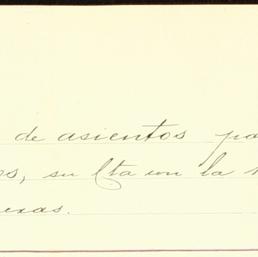 de asientos pa
os, su Cta con la
exas.